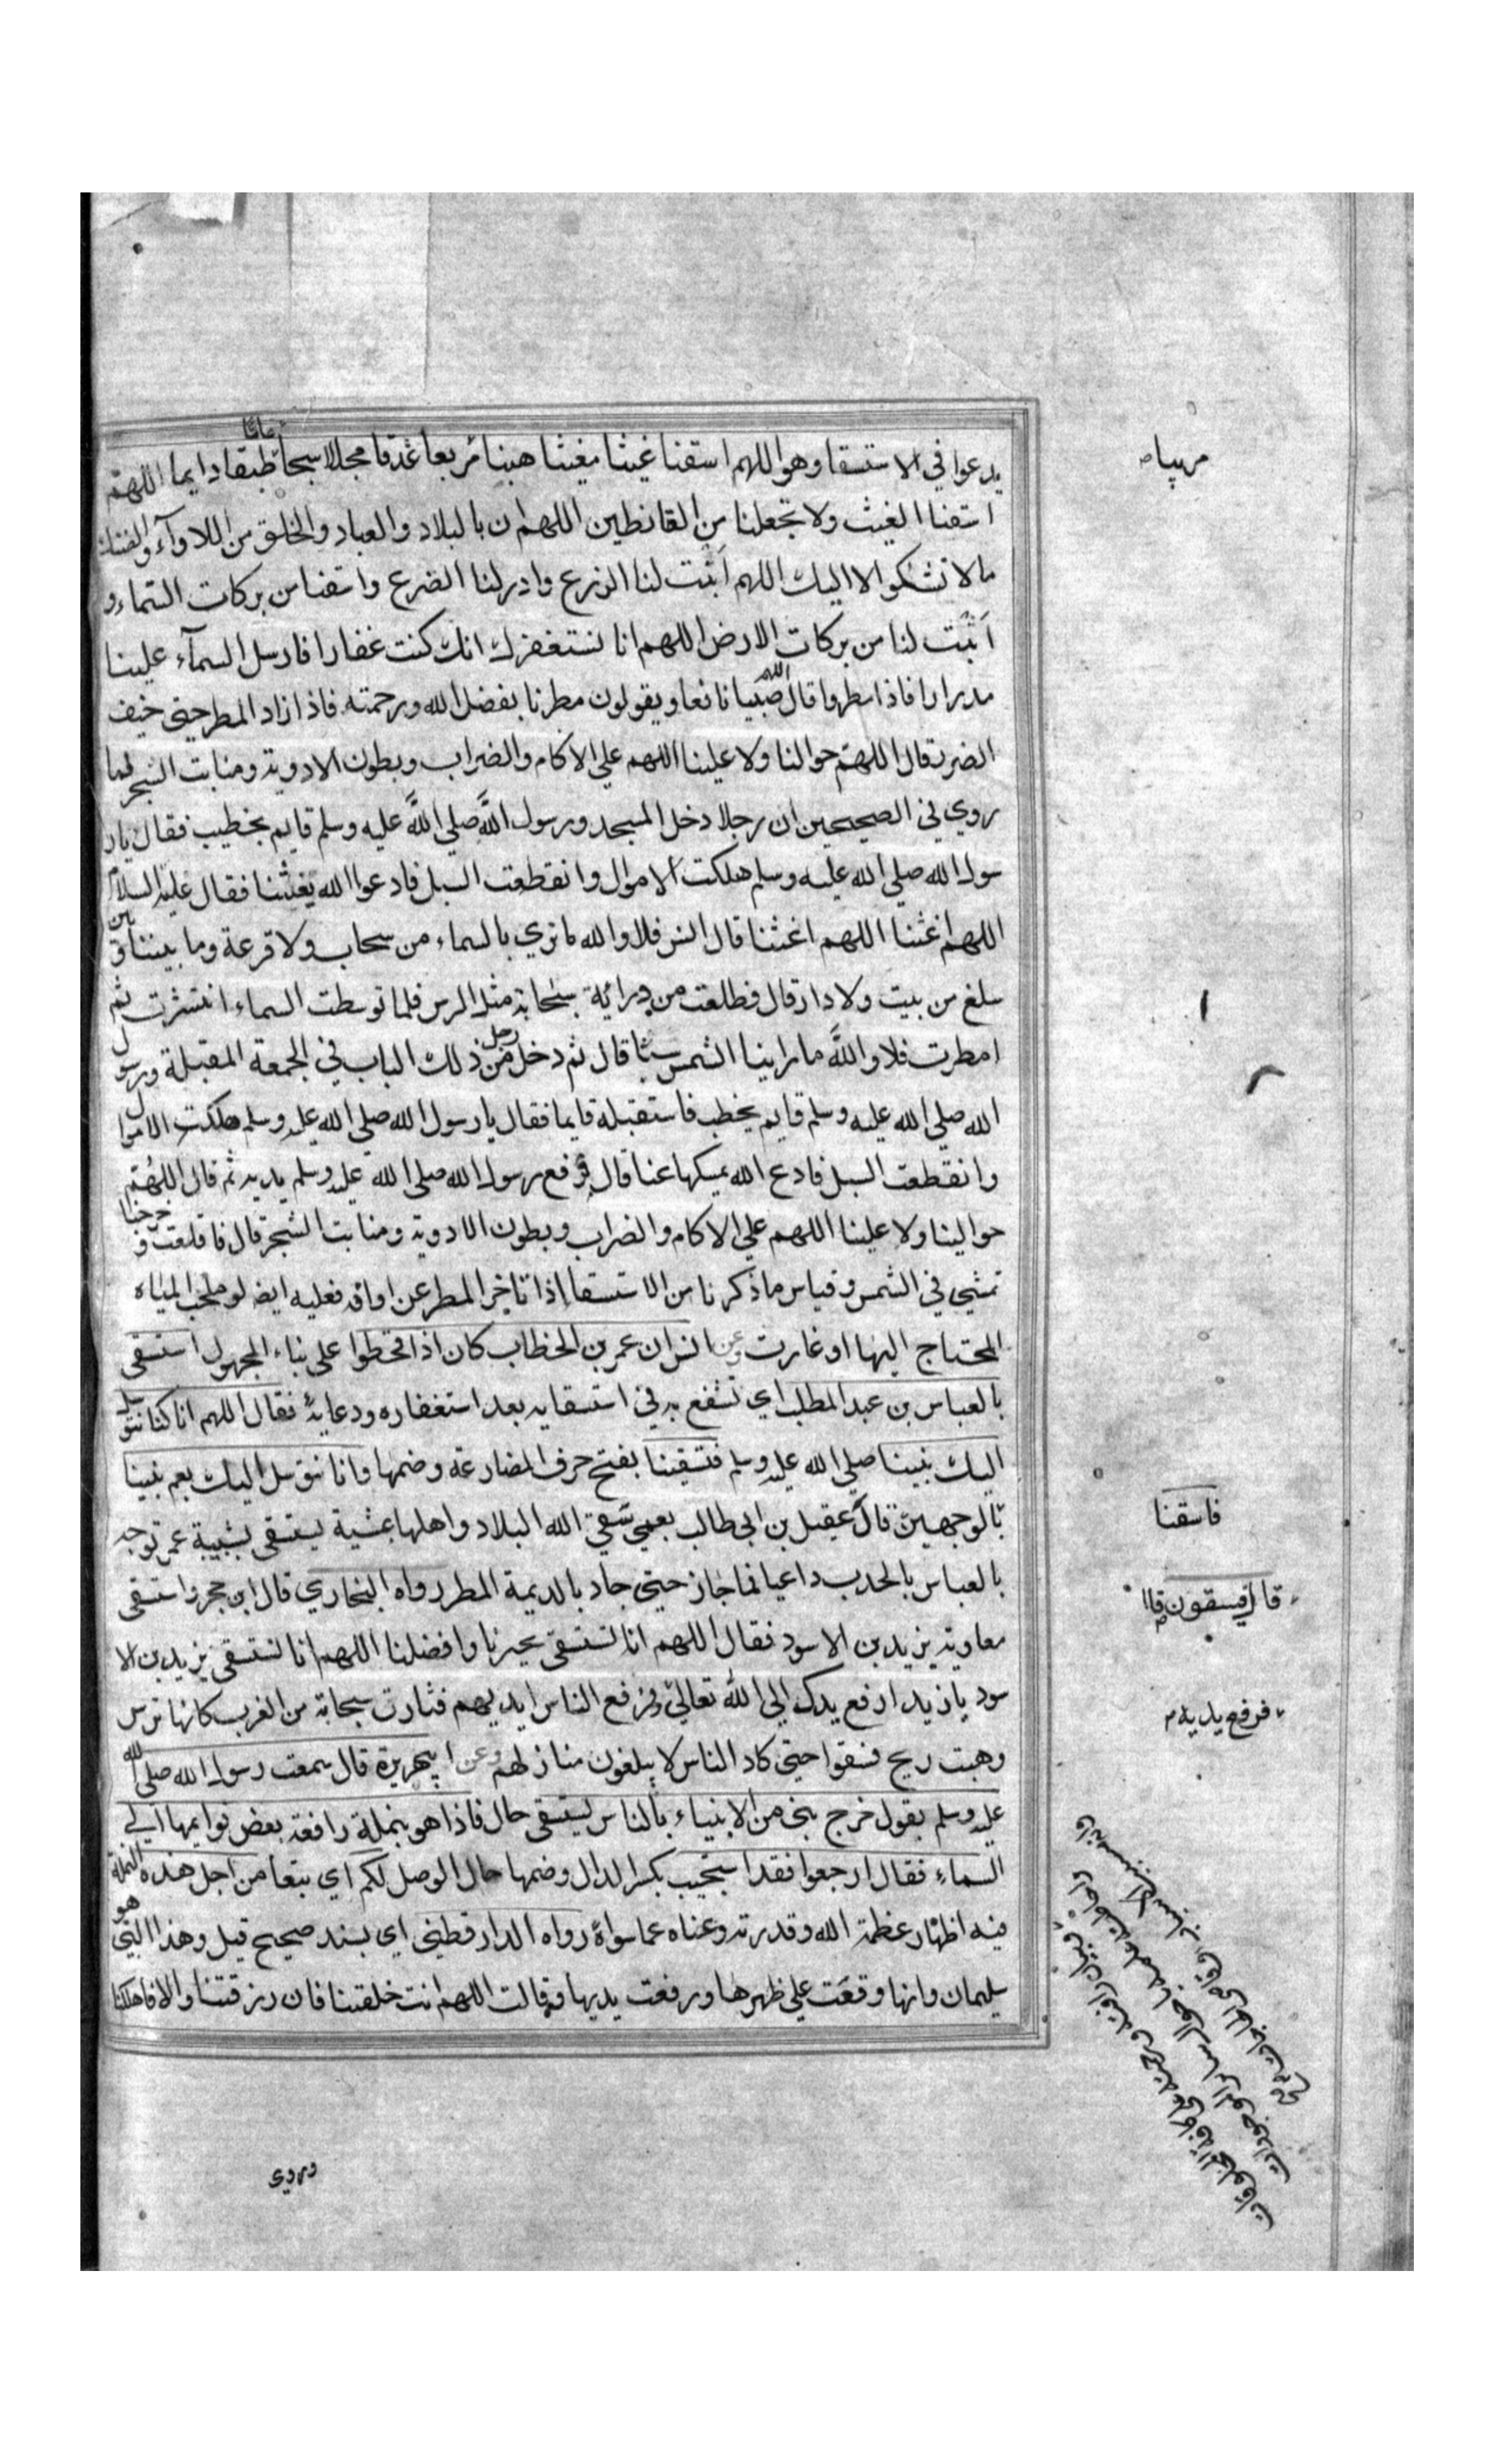 يدعوا في الاستسقا وهو اللهم اسقنا غيثا مغيثا هنيئا مريعا غدقا مجللا سحا طبقا دايما اللهم
عاما
اسقنا الغيث ولا تجعلنا من القانطين اللهم ان بالبلاد والعباد والخلق من اللاوآء والضنك
ما لا نشكوا الا اليك اللهم انبت لنا الزرع وادر لنا الضرع واسقنا من بركات السماء و
انبت لنا من بركات الارض اللهم انا نستغفرك انك كنت غفارا فارسل السمآء علينا
مدرارا فاذا مطروا قال اللهم صيبا نافعا ويقولون مطرنا بفضل الله ورحمته فاذا زاد المطر حتى خيف
الضرر قال اللهم حوالنا ولا علينا اللهم علي الاكام والضراب وبطون الادوية ومنابت الشجر لما
روي في الصحيحين ان رجلا دخل المسجد ورسول الله صلي الله عليه وسلم قايم يخطب فقال يار
سول الله صلي الله عليه وسلم هلكت الاموال وانقطعت السبل فادعوا الله يغثنا فقال عليه السلام
اللهم اغثنا اللهم اغثنا قال انس فلا والله ما نري بالسماء من سحاب ولا قزعة وما بيننا وبين
سلع من بيت ولا دار قال فطلعت من ورائه سحابة مثل الترس فلما توسطت السماء انتشرت ثم
امطرت فلا والله ما راينا الشمس سبتا قال ثم دخل رجل من ذلك الباب في الجمعة المقبلة ورسول
الله صلي الله عليه وسلم قايم يخطب فاستقبله قايما فقال يا رسول الله صلي الله عليه وسلم هلكت الاموال
وانقطعت السبل فادع الله يمسكها عنا قال فرفع رسول الله صلي الله عليه وسلم يديه ثم قال اللهم
حوالينا ولا علينا اللهم علي الاكام والضراب وبطون الادوية ومنابت الشجر قال فاقلعت وخرجنا
تمشي في الشمس وقياس ما ذكرنا من الاستسقا اذا تاخر المطر عن اوانه فعليه ايضا لو ملحت المياه
المحتاج اليها او غارت وعن انس ان عمر بن الخطاب كان اذا قحطوا على بناء المجهول استسقى
بالعباس بن عبد المطلب اي تشفع به في استسقايه بعد استغفاره ودعايه فقال اللهم انا كنا نتوسل
اليك بنبينا صلي الله عليه وسلم فتسقينا بفتح حرف المضارعة وضمها وانا نتوسل اليك بعم نبينا
فاسقنا
بالوجهين قال عقيل بن ابي طالب بعمي سقى الله البلاد واهلها عشية يستسقى بشيبة عمر توجه
قال فيسقون قال
بالعباس بالجدب داعيا فما جاز حتى جاد بالديمة المطر رواه البخاري قال ابن حجر واستسقى
معاوية بيزيد بن الاسود فقال اللهم انا نستسقى بخيرنا وافضلنا اللهم انا نستسقى بيزيد بن الا
سود يا زيد ارفع يدك الي الله تعالي ورفع الناس ايديهم فثارت سحابة من الغرب كانها ترس
فرفع يديه
وهبت ريح فسقوا حتى كاد الناس لا يبلغون منازلهم وعن ابي هريرة قال سمعت رسول الله صلي الله
عليه وسلم يقول خرج نبي من الانبياء بالناس يستسقى حال فاذا هو بنملة رافعة بعض قوايمها الي
السماء فقال ارجعوا فقد استجيب بكسر الدال وضمها حال الوصل لكم اي تبعا من اجل هذه النملة
فيه اظهار عظمة الله وقدرته وغناه عما سواه رواه الدار قطني اي بسند صحيح قيل وهذا النبي هو
سليمان وانها وقعت علي ظهرها ورفعت يديها وقالت اللهم انت خلقتنا فان رزقتنا والا فاهلكنا
وروي